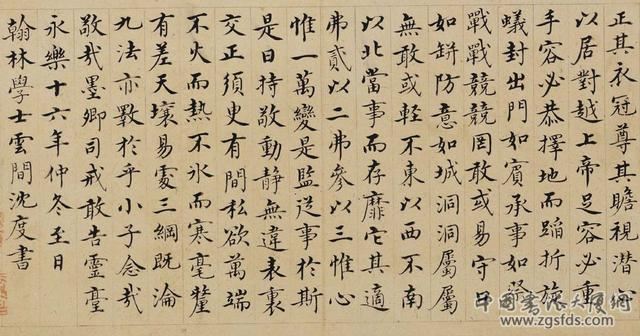 正其衣冠尊其瞻視潛心
以居對越上帝足容必重
手容必恭擇地而蹈折旋
蟻封出門如賓承事如祭
戰戰兢兢罔敢或易守口
如缾防意如城洞洞屬屬
無敢或輕不東以西不南
以北當事而存靡它其適
弗貳以二弗參以三惟心
惟一萬變是監從事於斯
是曰持敬動靜無違表裏
交正須臾有間私欲萬端
不火而熱不氷而寒毫釐
有差天壤易處三綱既淪
九法亦斁於乎小子念哉
敬哉墨卿司戒敢告靈臺
永樂十六年仲冬至日
翰林學士雲間沈度書
www.zgsfds.com